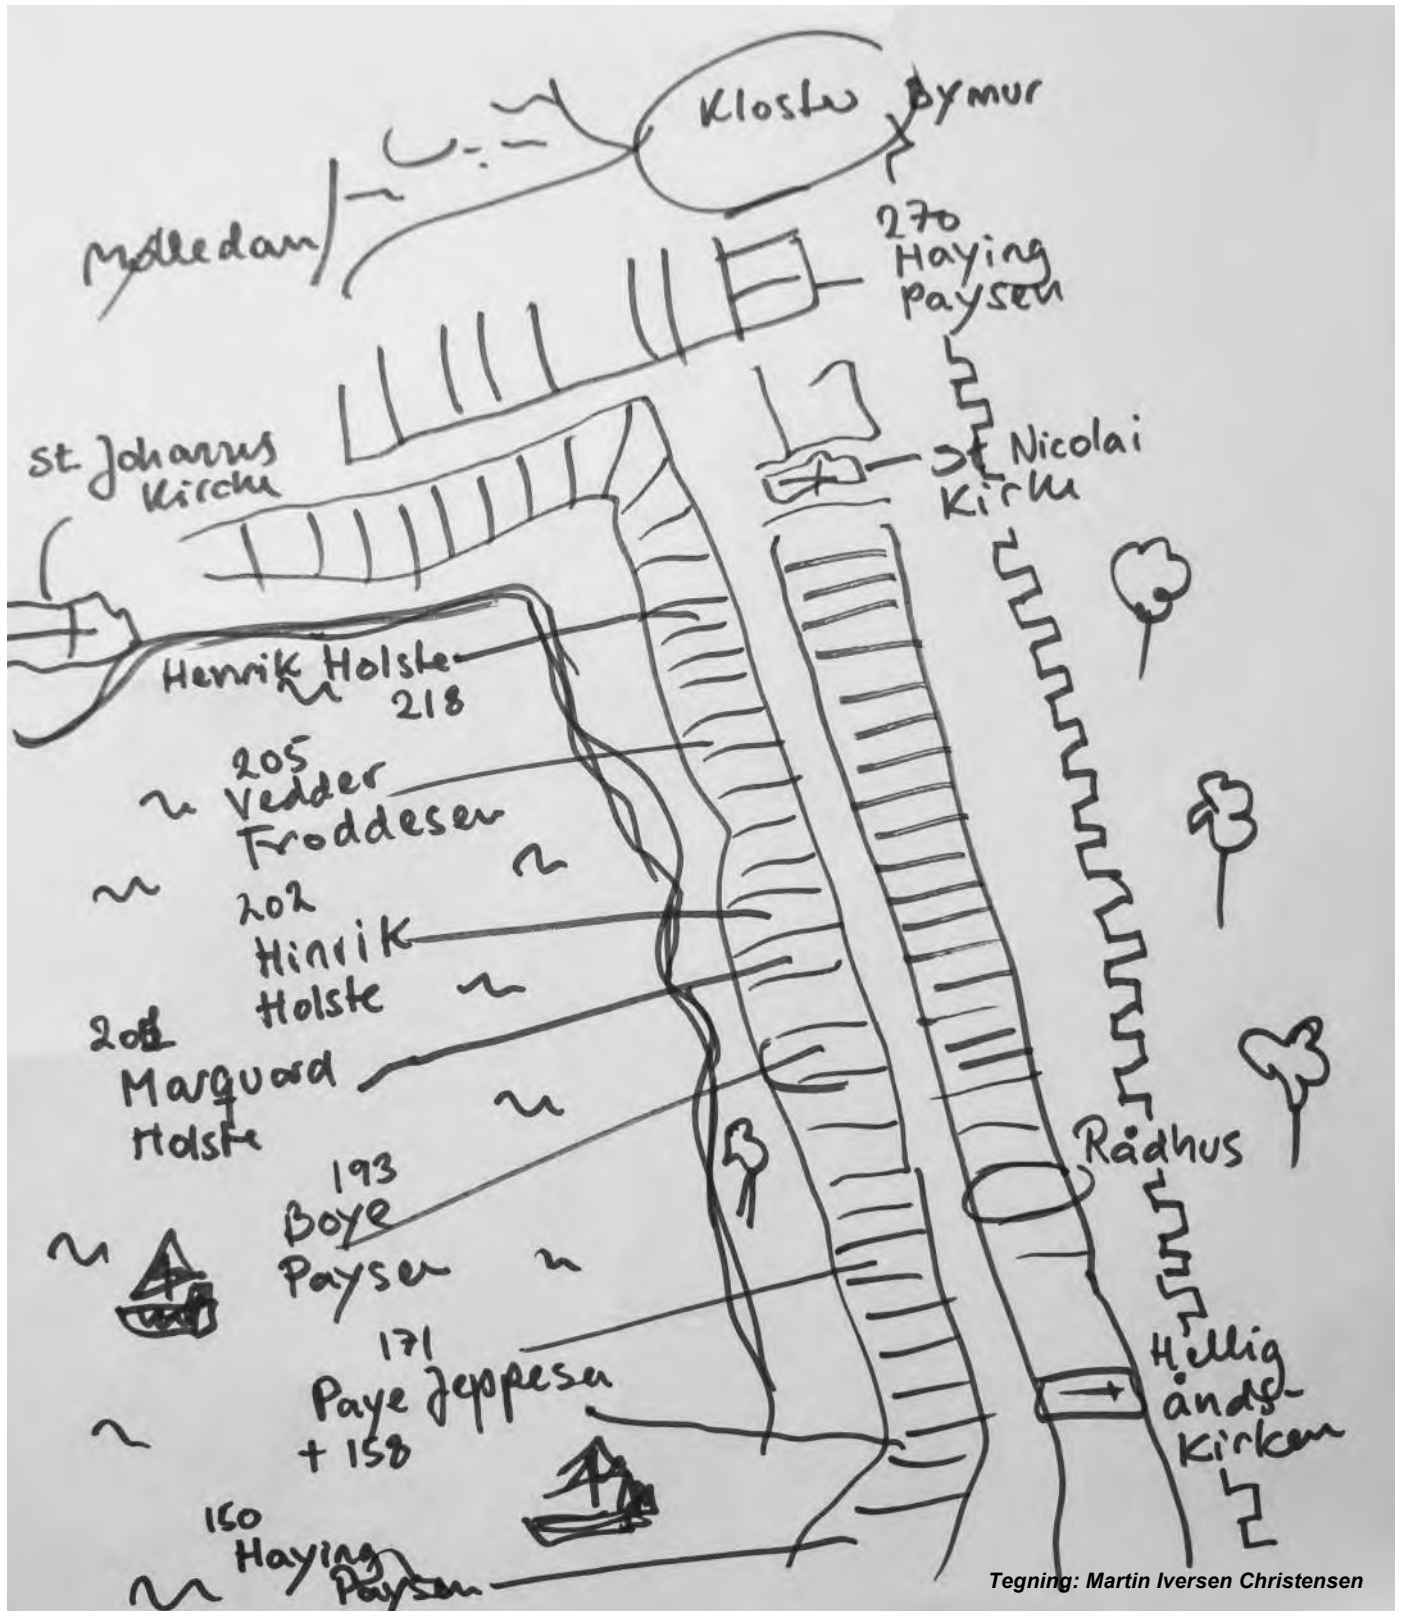 Kloster
Bymur
Mølledam
270
Haying
Paysen
St. Johannis
Kirche
St Nicolai
Kirke
Henrik Holste
218
205
Vedder
Froddesen
202
Hinrik
Holste
Marquard
Holste
193
Boye
Paysen
Rådhus
171
Paye Jeppesen
+ 158
Hellig
ånds-
Kirken
150
Haying
Paysen
Tegning: Martin Iversen Christensen